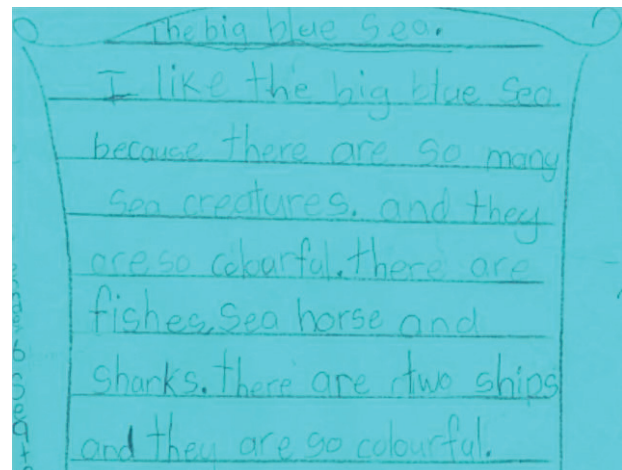 The big blue Sea.
I like the big blue Sea
because there are so many
Sea creatures. and they
are so colourful. there are
fishes, Sea horse and
sharks. there are two ships
and they are so colourful.